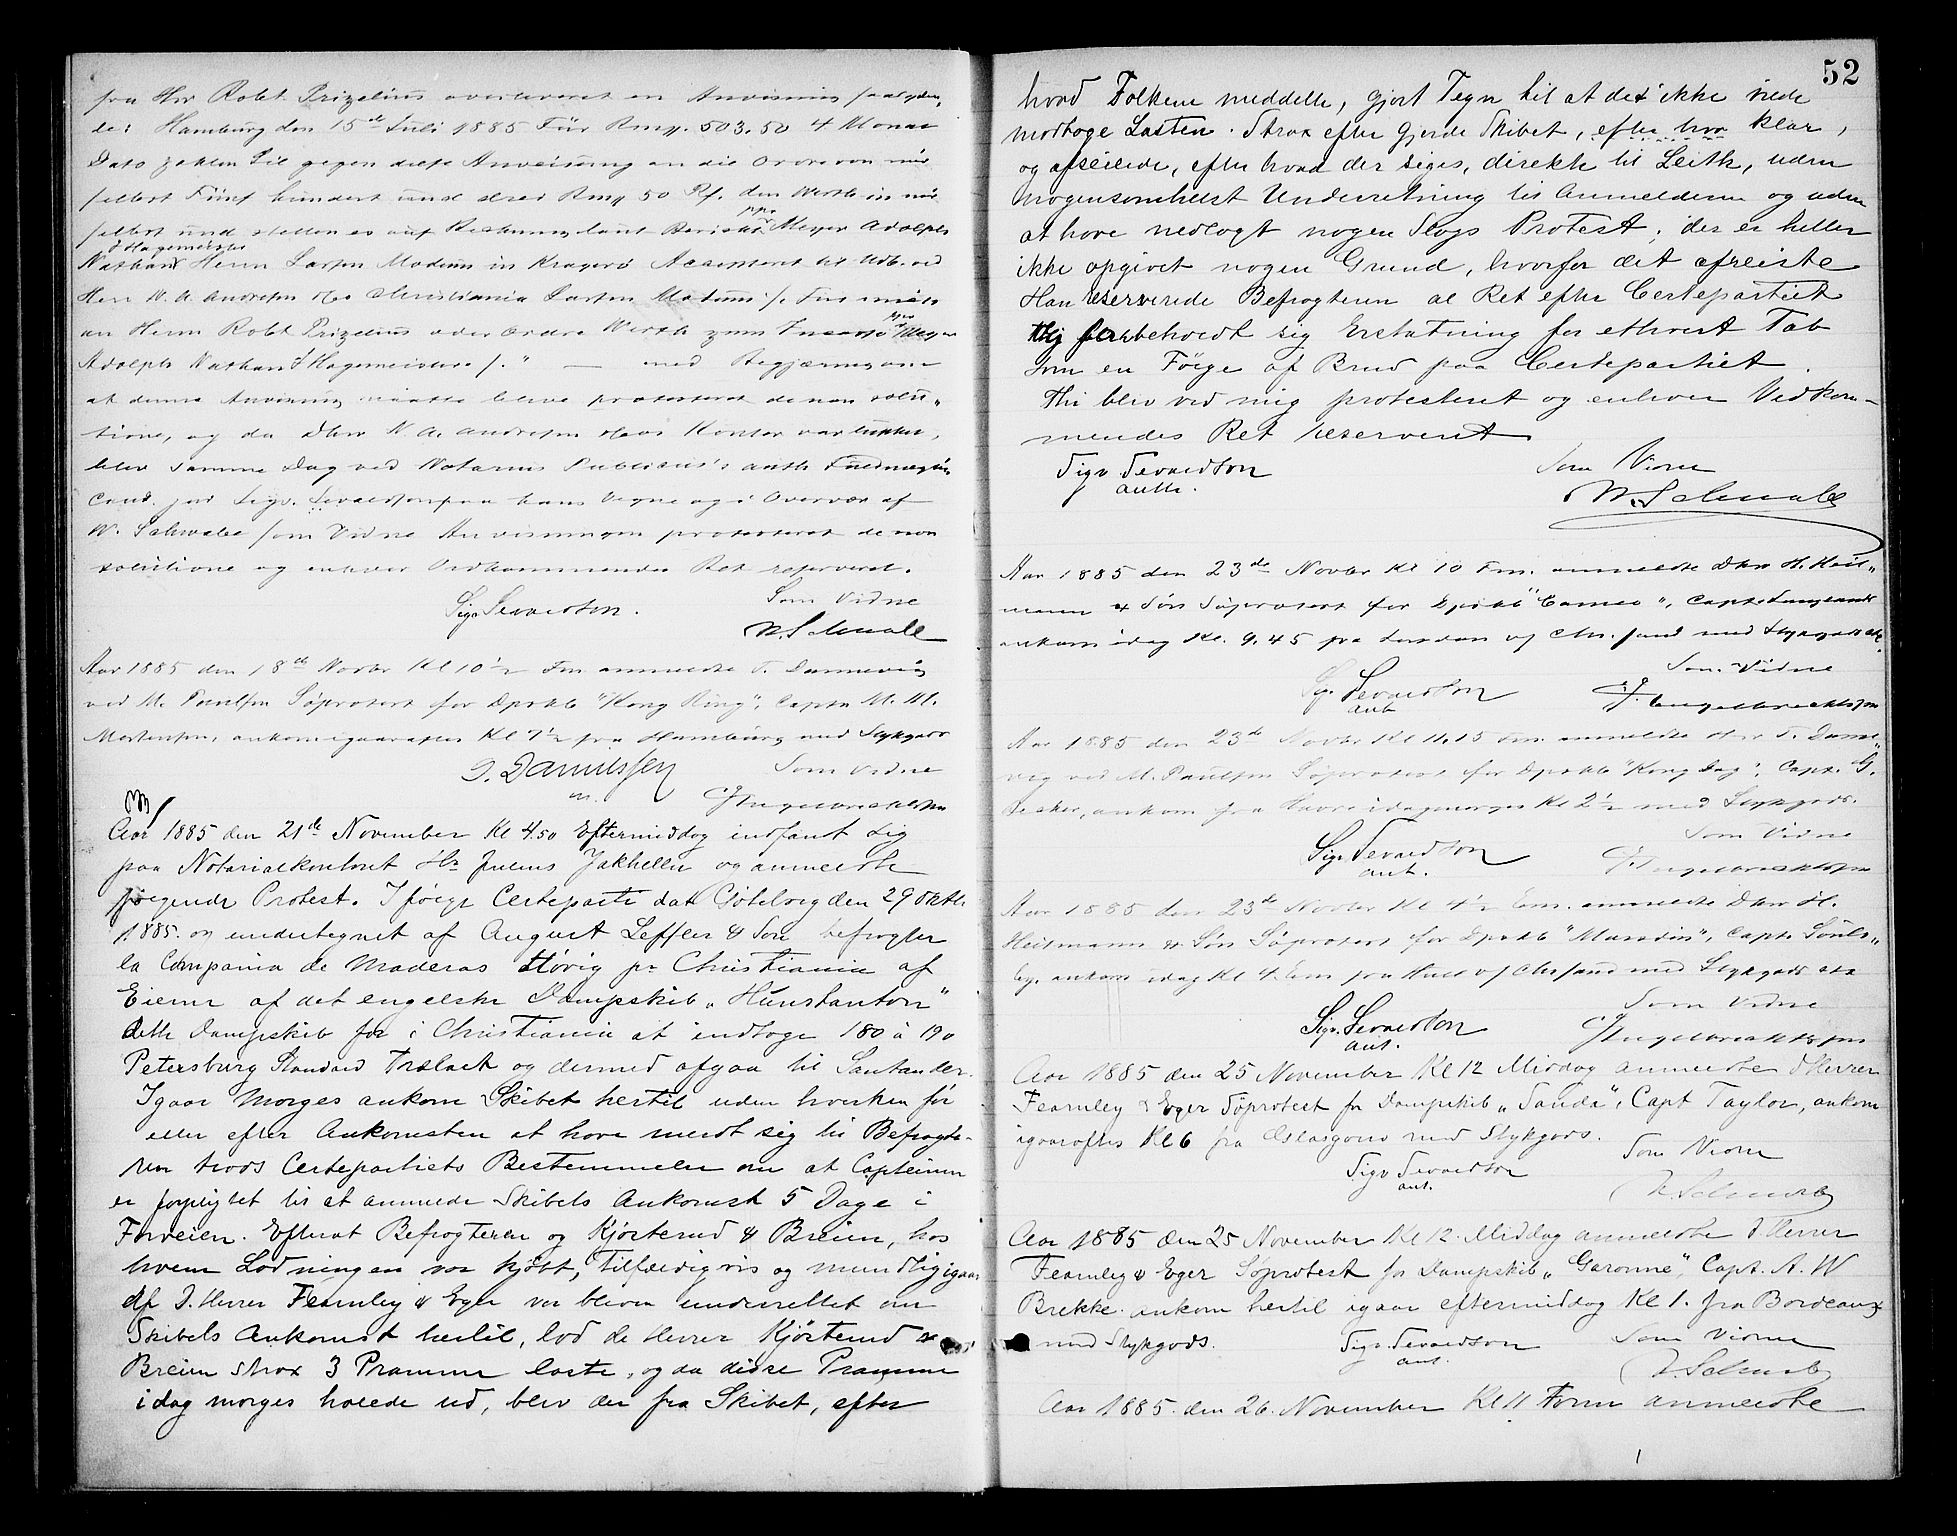 fra Hrr Robt Prizelius overleveret en Anvisning saalyden„
de: Hamburg den 15de Juli 1885 Für Rmk. 503.50 4 Monat
Dato zahlen Sie gegen diese Anweisung an die Ordre von mir
selbst Fünf hundert und drei Rmk 50 Pf. den Werth in mir
selbst und stellen es auf Rechnung laut Bericht ppr Meyer Adolph
Nathan & Hagemeister Herrn Larsen Modum in Kragerö Accepteret til Udb. ved
Herr N. A. Andresen & Co Christiania Larsen Modum /. Für mich
an Herrn Robt Prizelius oder Ordre Werth zum Incasso ppr Meyer
Adolph Nathan & Hagemeister /." — med Begjæring om
at denne Anvisning maatte blive protesteret de non solu„
tione, og da Dhrr N. A. Andresen & Cos Kontor var lukket,
blev samme Dag ved Notarius Publicus's auth Fuldmægtig
Cand. jur Sigv. Sevaldson paa hans Vegne og i Overvær af
W. Schwabe som Vidne Anvisningen protesteret de non
solutione og enhver Vedkommendes Ret reserveret.
Sigv Sevaldson. Som Vidne
W. Schwabe
Aar 1885 den 18de Novbr Kl 10½ Fm. anmeldte T. Dannevig
ved M. Paulsen Söprotest for Dpskb "Kong Ring", Captn M. M.
Mortensen, ankom igaaraftes Kl 7½ fra Hamburg med Stykgods
D. Danielssen Som Vidne
Engelbrechtsen
Aar 1885 den 21de November Kl 4.50 Eftermiddag indfant sig
paa Notarialkontoret Hr Julius Jakhelln og anmeldte
følgende Protest. I følge Certeparti dat. Göteborg den 29 Oktbr
1885. og undertegnet af August Leffler & Son befragter
la Compania de Maderas Störig pr Christiania af
Eierne af det engelske Dampskib „Hunstanton"
dette Dampskib for i Christiania at indtage 180 à 190
Petersburg Standard Trælast og dermed afgaa til Santander.
Igaar Morges ankom Skibet hertil uden hverken før
eller efter Ankomsten at have meldt sig til Befragte-
ren trods Certepartiets Bestemmelse om at Capteinen
er forpligtet til at anmelde Skibets Ankomst 5 Dage i
Forveien. Efterat Befragteren og Kjörterud & Breien, hos
hvem Ladningen var kjöbt, tilfældigvis og mundtlig igaar
af D. Herrer Fearnley & Eger var bleven underrettet om
Skibets Ankomst hertil, lod de Herrer Kjörterud &
Breien strax 3 Pramme laste, og da disse Pramme
idag morges halede ud, blev der fra Skibet, efter
52
hvad Folkene meddelte, gjort Tegn til at det ikke vilde
modtage Lasten. Strax efter gjorde Skibet, efter hva klar,
og afseilede, efter hvad der siges, direkte til Leith, uden
nogensomhelst Underretning til Anmelderen og uden
at have nedlagt nogen Slags Protest; der er heller
ikke opgivet nogen Grund, hvorfor det afreiste
Han reserverede Befragteren al Ret efter Certepartiet
forbeholdt sig Erstatning for ethvert Tab
som en Følge af Brud paa Certepartiet.
Thi blev ved mig protesteret og enhver Vedkom-
mendes Ret reserveret
Sigv. Sevaldson Som Vidne
auth. W. Schwabe
Aar 1885 den 23de Novbr Kl 10 Fm. anmeldte Dhrr H. Heit„
mann & Sön Söprotest for Dpskb "Cameo", Capt.
ankom idag Kl. 9.45 fra London og Chr.sand med Stykgods etc.
Sigv. Sevaldson Som Vidne
aut Engelbrechtsen
Aar 1885 den 23de Novbr Kl 11.15 Fm. anmeldte Hrr T. Danne„
vig ved M. Paulsen Söprotest for Dpskb "Kong Dag", Capt. G.
ankom fra Havre idagmorges Kl 2½ med Stykgods.
Sigv. Sevaldson Som Vidne
aut. Engelbrechtsen
Aar 1885 den 23de Novbr Kl 4½ Em. anmeldte Dhrr H.
Heitmann & Sön Söprotest for Dpskb "Capt.
ankom idag Kl 4 Em fra Hull og Chrsand med Stykgods etc
Sigv. Sevaldson Som Vidne
aut. Engelbrechtsen
Aar 1885 den 25 November Kl 12 Middag anmeldte d'Herrer
Fearnley & Eger Søprotest for Dampskib „Tauda", Capt Taylor, ankom
igaaraftes Kl 6 fra Glasgow med Stykgods.
Sigv Sevaldson Som Vidne
aut. W. Schwabe
Aar 1885 den 25 November Kl 12. Middag anmeldte d'Herrer
Fearnley & Eger Søprotest for Dampskib „Garonne", Capt. A. W
Brekke. ankom hertil igaar eftermiddag Kl 1. fra Bordeaux
med Stykgods. Sigv. Sevaldson Som Vidne
aut. W. Schwabe
Aar 1885. den 26. November Kl 11 Form anmeldte